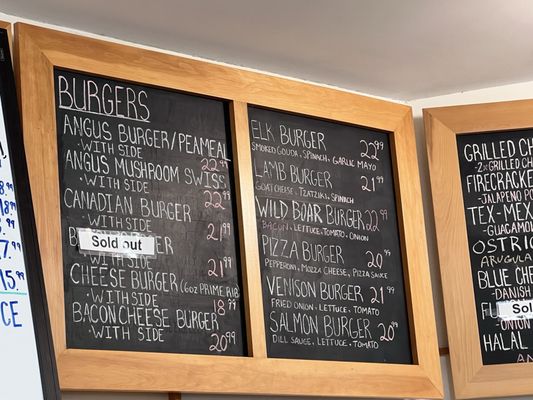 BURGERS
ANGUS BURGER/PEAMEAL
• WITH SIDE 22.99
ANGUS MUSHROOM SWISS
• WITH SIDE 22.99
CANADIAN BURGER
• WITH SIDE 21.99
Sold out
• WITH SIDE 21.99
CHEESE BURGER (6oz PRIME RIB)
• WITH SIDE 18.99
BACON CHEESE BURGER
• WITH SIDE 20.99
ELK BURGER 22.99
SMOKED GOUDA, SPINACH, GARLIC MAYO
LAMB BURGER 21.99
GOAT CHEESE, TZATZIKI, SPINACH
WILD BOAR BURGER 22.99
BACON, LETTUCE, TOMATO, ONION
PIZZA BURGER 20.99
PEPPERONI, MOZZA CHEESE, PIZZA SAUCE
VENISON BURGER 21.99
FRIED ONION, LETTUCE, TOMATO
SALMON BURGER 20.99
DILL SAUCE, LETTUCE, TOMATO
GRILLED CH
• 2x GRILLED CH
FIRECRACKER
• JALAPENO P
TEX-MEX
• GUACAMO
OSTRIC
ARUGULA
BLUE CHE
• DANISH
Sol
• ONION
HALAL
AN